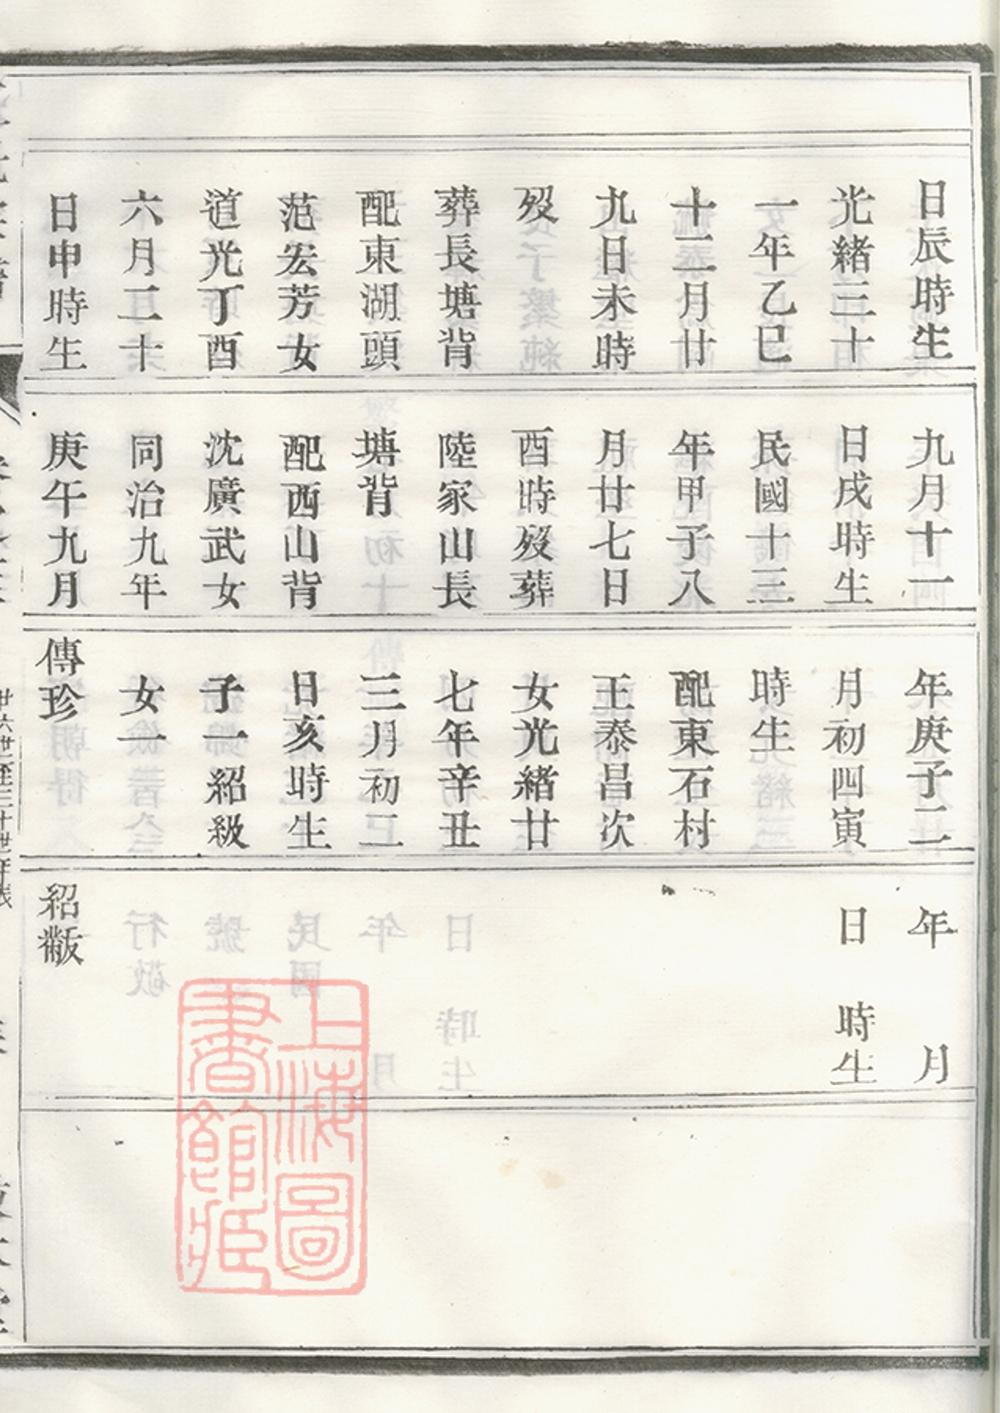 日辰時生
光緒三十
一年乙巳
十二月廿
九日未時
歿
葬長塘背
配東湖頭
范宏芳女
道光丁酉
六月二十
日申時生
九月十一
日戌時生
民國十三
年甲子八
月廿七日
酉時歿葬
陸家山長
塘背
配西山背
沈廣武女
同治九年
庚午九月
年庚子二
月初四寅
時生
配東石村
王泰昌次
女光緒廿
七年辛丑
三月初二
日亥時生
子一紹級
女一
傳珍
年 月
日 時生
紹黻
上海圖
書館藏
廿六世至三十世年表